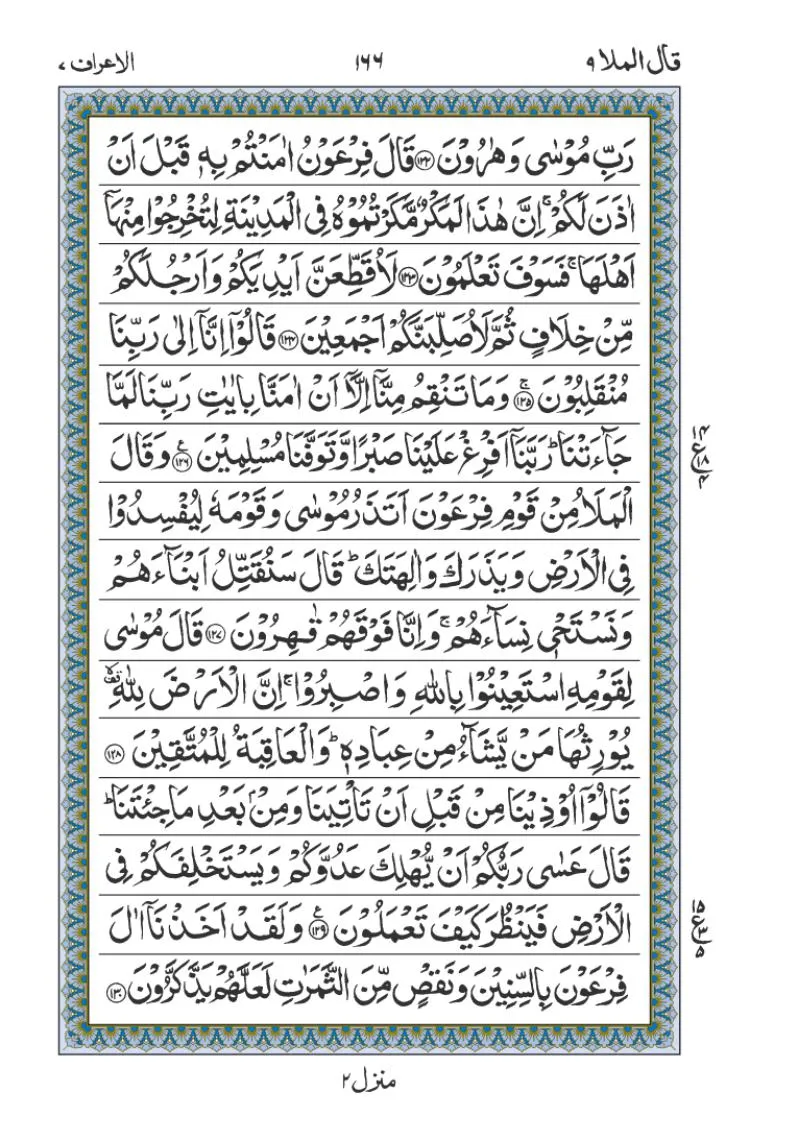 قال الملا ٩
١٦٦
الاعراف ٧
رَبِّ مُوْسٰى وَهٰرُوْنَ ﴿١٢٢﴾ قَالَ فِرْعَوْنُ اٰمَنْتُمْ بِهٖ قَبْلَ اَنْ
اٰذَنَ لَكُمْ ۚ اِنَّ هٰذَا لَمَكْرٌ مَّكَرْتُمُوْهُ فِى الْمَدِيْنَةِ لِتُخْرِجُوْا مِنْهَاۤ
اَهْلَهَا ۚ فَسَوْفَ تَعْلَمُوْنَ ﴿١٢٣﴾ لَاُقَطِّعَنَّ اَيْدِيَكُمْ وَاَرْجُلَكُمْ
مِّنْ خِلَافٍ ثُمَّ لَاُصَلِّبَنَّكُمْ اَجْمَعِيْنَ ﴿١٢٤﴾ قَالُوْۤا اِنَّاۤ اِلٰى رَبِّنَا
مُنْقَلِبُوْنَ ۚ﴿١٢٥﴾ وَمَا تَنْقِمُ مِنَّاۤ اِلَّاۤ اَنْ اٰمَنَّا بِاٰيٰتِ رَبِّنَا لَمَّا
جَآءَتْنَا ؕ رَبَّنَاۤ اَفْرِغْ عَلَيْنَا صَبْرًا وَّتَوَفَّنَا مُسْلِمِيْنَ ﴿١٢٦﴾ ع وَقَالَ
الْمَلَاُ مِنْ قَوْمِ فِرْعَوْنَ اَتَذَرُ مُوْسٰى وَقَوْمَهٗ لِيُفْسِدُوْا
فِى الْاَرْضِ وَيَذَرَكَ وَاٰلِهَتَكَ ؕ قَالَ سَنُقَتِّلُ اَبْنَآءَهُمْ
وَنَسْتَحْىٖ نِسَآءَهُمْ ۚ وَاِنَّا فَوْقَهُمْ قٰهِرُوْنَ ﴿١٢٧﴾ قَالَ مُوْسٰى
لِقَوْمِهِ اسْتَعِيْنُوْا بِاللّٰهِ وَاصْبِرُوْا ۚ اِنَّ الْاَرْضَ لِلّٰهِ ۙ
يُوْرِثُهَا مَنْ يَّشَآءُ مِنْ عِبَادِهٖ ؕ وَالْعَاقِبَةُ لِلْمُتَّقِيْنَ ﴿١٢٨﴾
قَالُوْۤا اُوْذِيْنَا مِنْ قَبْلِ اَنْ تَاْتِيَنَا وَمِنْۢ بَعْدِ مَا جِئْتَنَا ؕ
قَالَ عَسٰى رَبُّكُمْ اَنْ يُّهْلِكَ عَدُوَّكُمْ وَيَسْتَخْلِفَكُمْ فِى
الْاَرْضِ فَيَنْظُرَ كَيْفَ تَعْمَلُوْنَ ﴿١٢٩﴾ ع وَلَقَدْ اَخَذْنَاۤ اٰلَ
فِرْعَوْنَ بِالسِّنِيْنَ وَنَقْصٍ مِّنَ الثَّمَرٰتِ لَعَلَّهُمْ يَذَّكَّرُوْنَ ﴿١٣٠﴾
منزل ٢